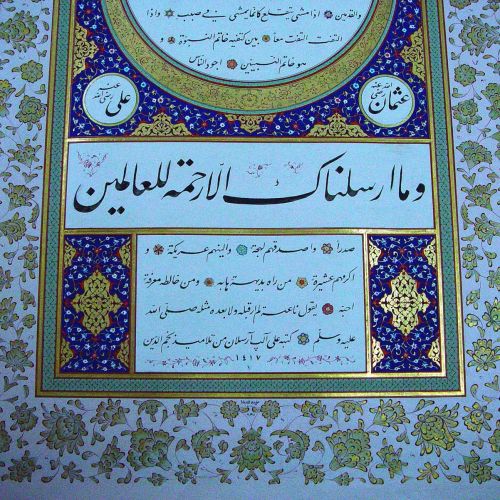 والقدمين اذا مشى يتقلع كأنما يمشي في صبب واذا
التفت التفت معاً بين كتفيه خاتم النبوة
وهو خاتم النبيين اجود الناس
على رضي الله عنه
عثمان رضي الله عنه
وما ارسلناك الا رحمة للعالمين
صدرا واصدقهم لهجة والينهم عريكة و
اكرمهم عشيرة من رآه بديهة هابه ومن خالطه معرفة
احبه يقول ناعته لم ار قبله ولا بعده مثله صلى الله
عليه وسلم كتبه علي آلپ أرسلان من تلاميذ نجم الدين
١٤١٧